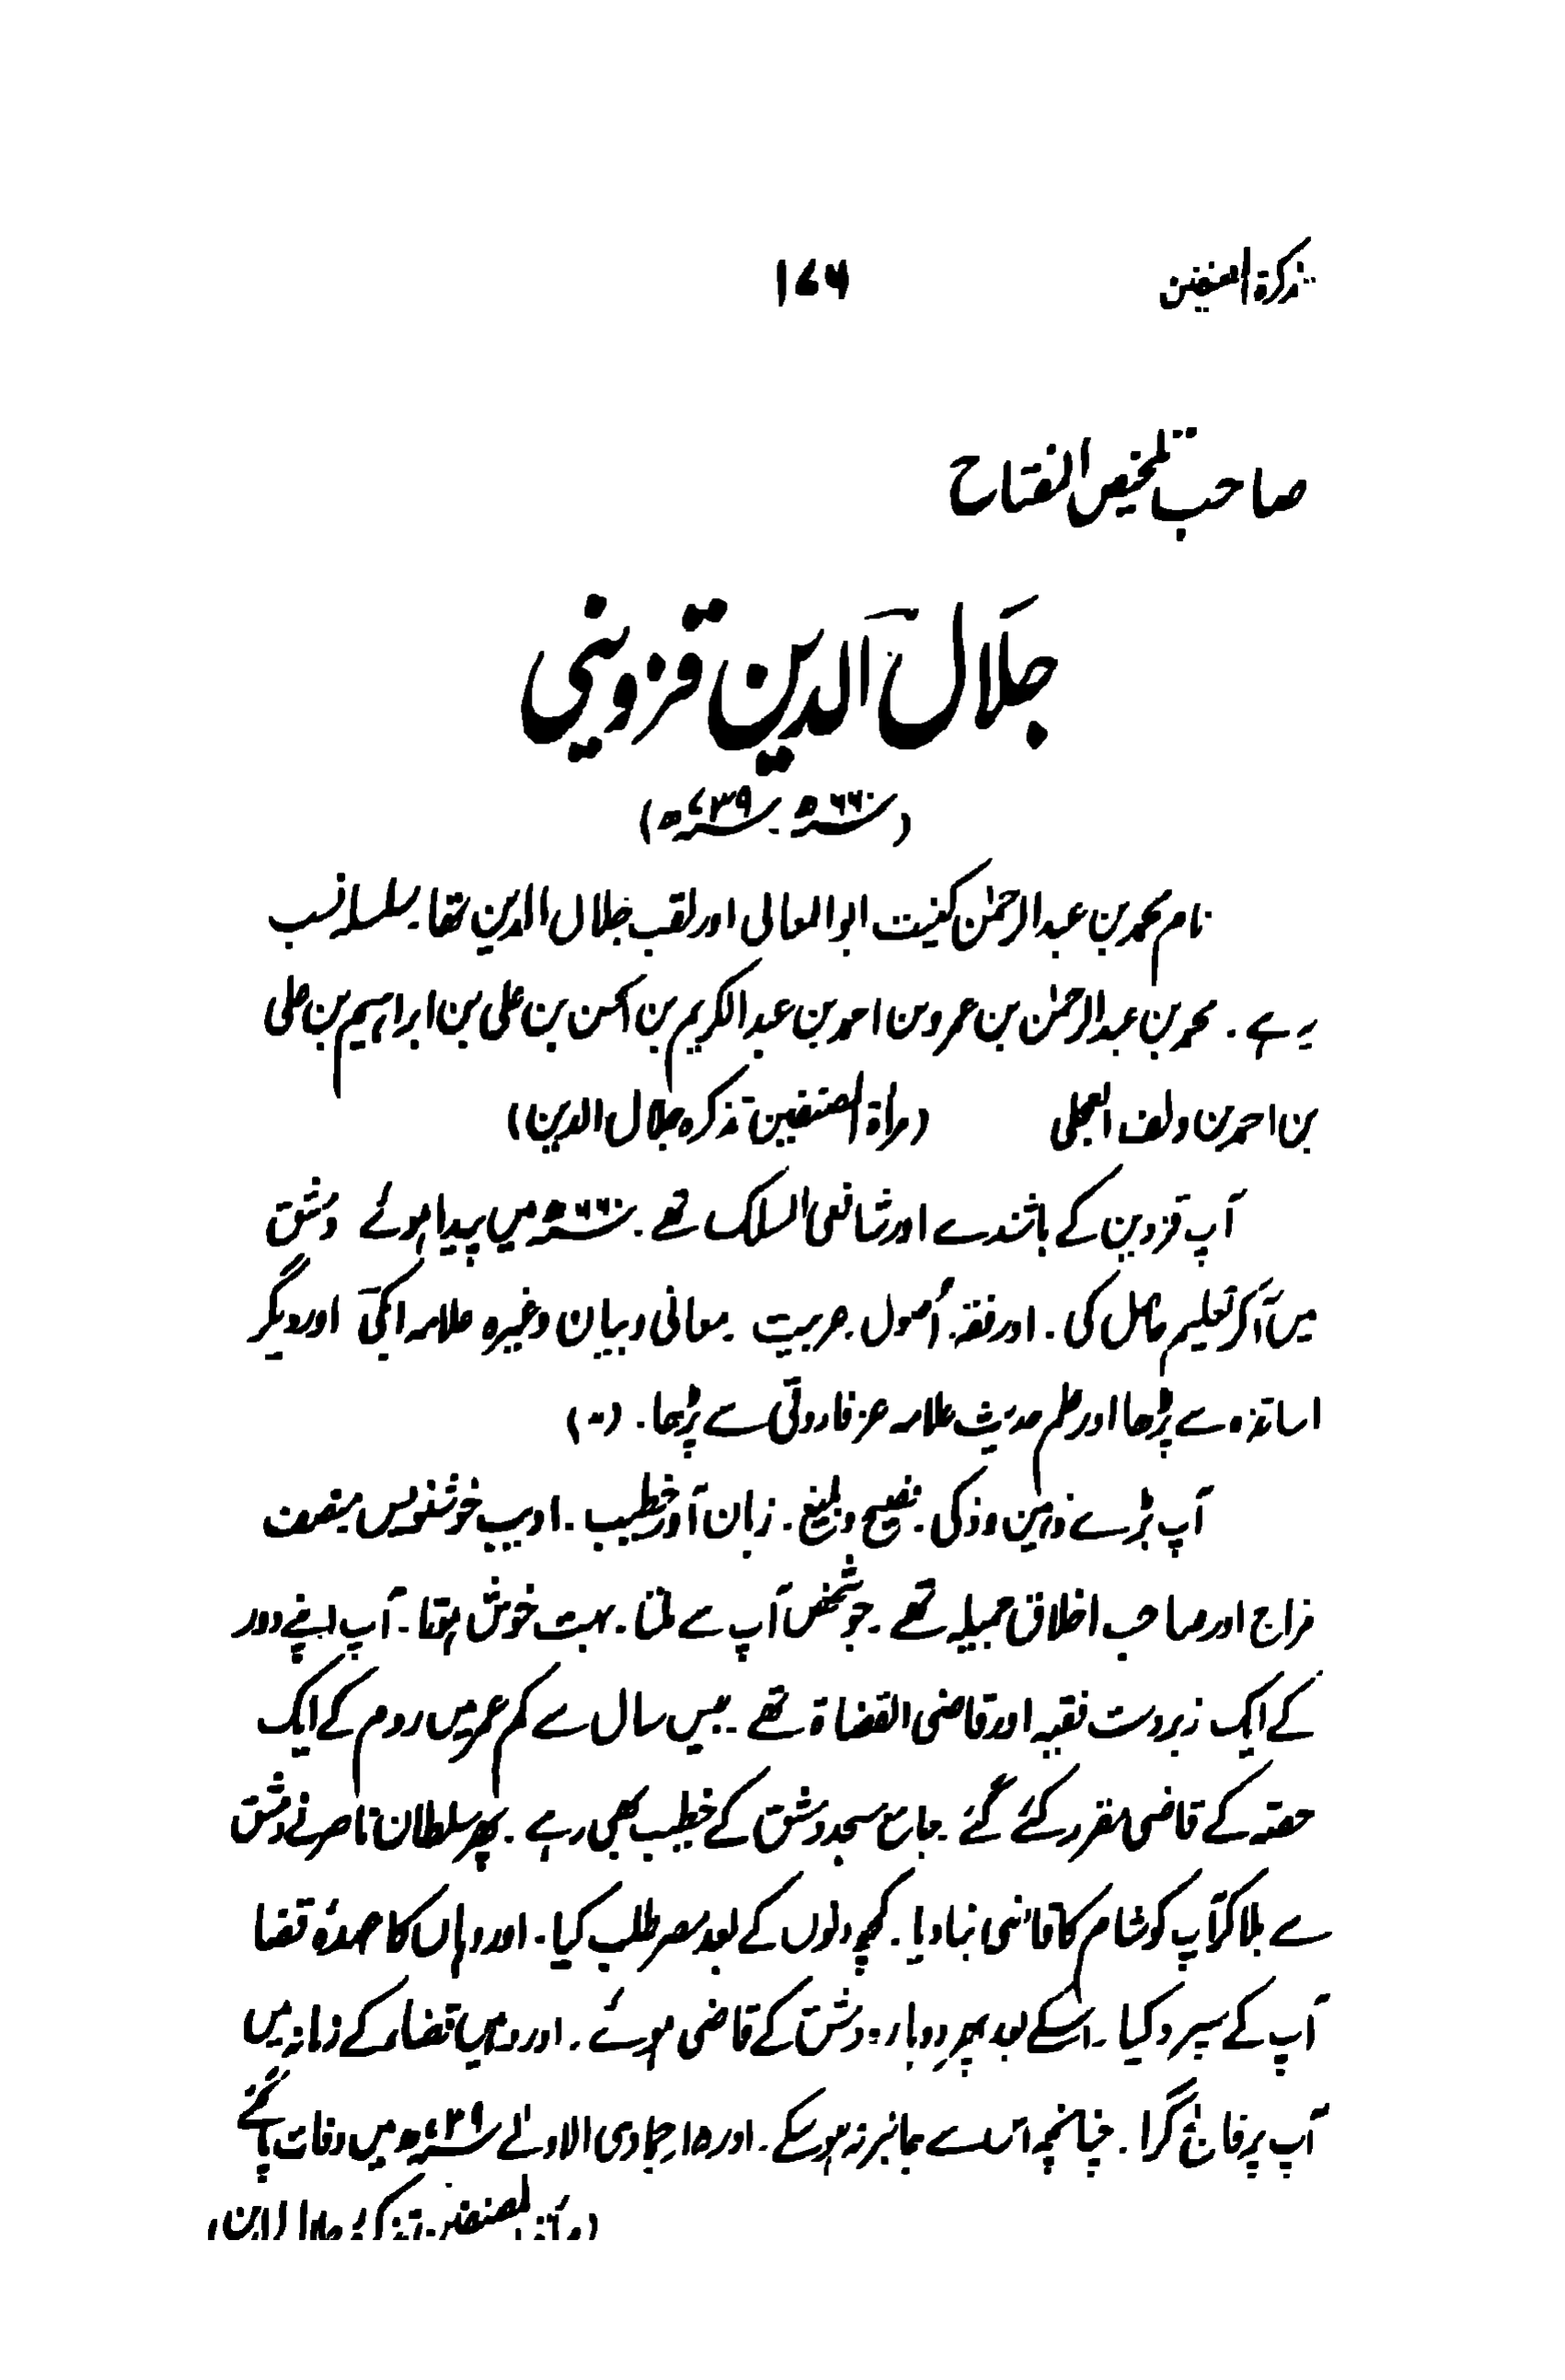 تذکرۃ المصنفین ۱۷۶
صاحب تلخیص المفتاح
جلال الدین قزوینی
(سنہ ۶۶۰ھ ۔ سنہ ۷۳۹ھ)
نام محمد بن عبدالرحمٰن کنیت ابو المعالی اور لقب جلال الدین تھا۔ سلسلہ نسب
یہ ہے ۔ محمد بن عبدالرحمٰن بن عمرو بن احمد بن عبدالکریم بن الحسن بن علی بن ابراہیم بن علی
بن احمد بن دلف العجلی (مرأۃ المصنفین تذکرہ جلال الدین)
آپ قزوین کے باشندے اور شافعی المسلک تھے ۔ سنہ ۶۶۰ھ میں پیدا ہوئے دمشق
میں آکر تعلیم حاصل کی ۔ اور فقہ ۔ اُصول ۔ عربیت ۔ معانی و بیان وغیرہ علامہ اکی اور دیگر
اساتذہ سے پڑھا اور علم حدیث علامہ عز فاروقی سے پڑھا ۔ (۰)
آپ بڑے ذہین و ذکی ۔ فصیح و بلیغ ۔ زبان آور خطیب ۔ ادیب خوشنویس منصف
مزاج اور صاحب اخلاق جمیلہ تھے ۔ جو شخص آپ سے ملتا ۔ بہت خوش ہوتا ۔ آپ اپنے دور
کے ایک زبردست فقیہ اور قاضی القضاۃ تھے ۔ بیس سال سے کم عمر میں روم کے ایک
حصّہ کے قاضی مقرر کئے گئے ۔ جامع مسجد دمشق کے خطیب بھی رہے ۔ پھر سلطان ناصر نے دمشق
سے بلا کر آپ کو شام کا قاضی بنا دیا ۔ کچھ دنوں کے بعد مصر طلب کیا ۔ اور وہاں کا عہدۂ قضا
آپ کے سپرد کیا ۔ اسکے بعد پھر دوبارہ دمشق کے قاضی ہوئے ۔ اور وہیں قضاء کے زمانہ میں
آپ پر فالج گرا ۔ چنانچہ اس سے جانبر نہ ہو سکے ۔ اور ۱۵ جمادی الاولےٰ سنہ ۷۳۹ھ میں وفات پاگئے
(مرأۃ المصنفین تذکرہ جلال الدین)